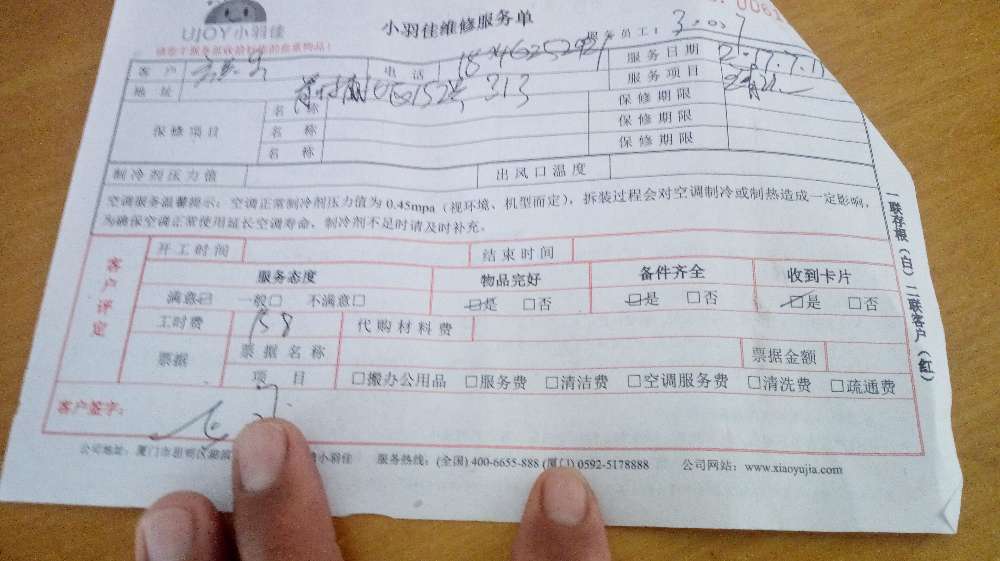 UJOY小羽佳
小羽佳维修服务单
服务员工：
客户 电话 服务日期
地址 313 服务项目
保修项目 名称 保修期限
名称 保修期限
名称 保修期限
制冷剂压力值 出风口温度
空调服务温馨提示：空调正常制冷剂压力值为0.45mpa（视环境、机型而定），拆装过程会对空调制冷或制热造成一定影响，
为确保空调正常使用延长空调寿命，制冷剂不足时请及时补充。
客户评定
开工时间 结束时间
服务态度 物品完好 备件齐全 收到卡片
满意□ 一般□ 不满意□ □是 □否 □是 □否 □是 □否
工时费 158 代购材料费
票据 票据名称 票据金额
项目 □搬办公用品 □服务费 □清洁费 □空调服务费 □清洗费 □疏通费
客户签字：
公司地址：厦门市思明区 小羽佳 服务热线：(全国) 400-6655-888 (厦门) 0592-5178888 公司网站：www.xiaoyujia.com
一联存根（白）二联客户（红）